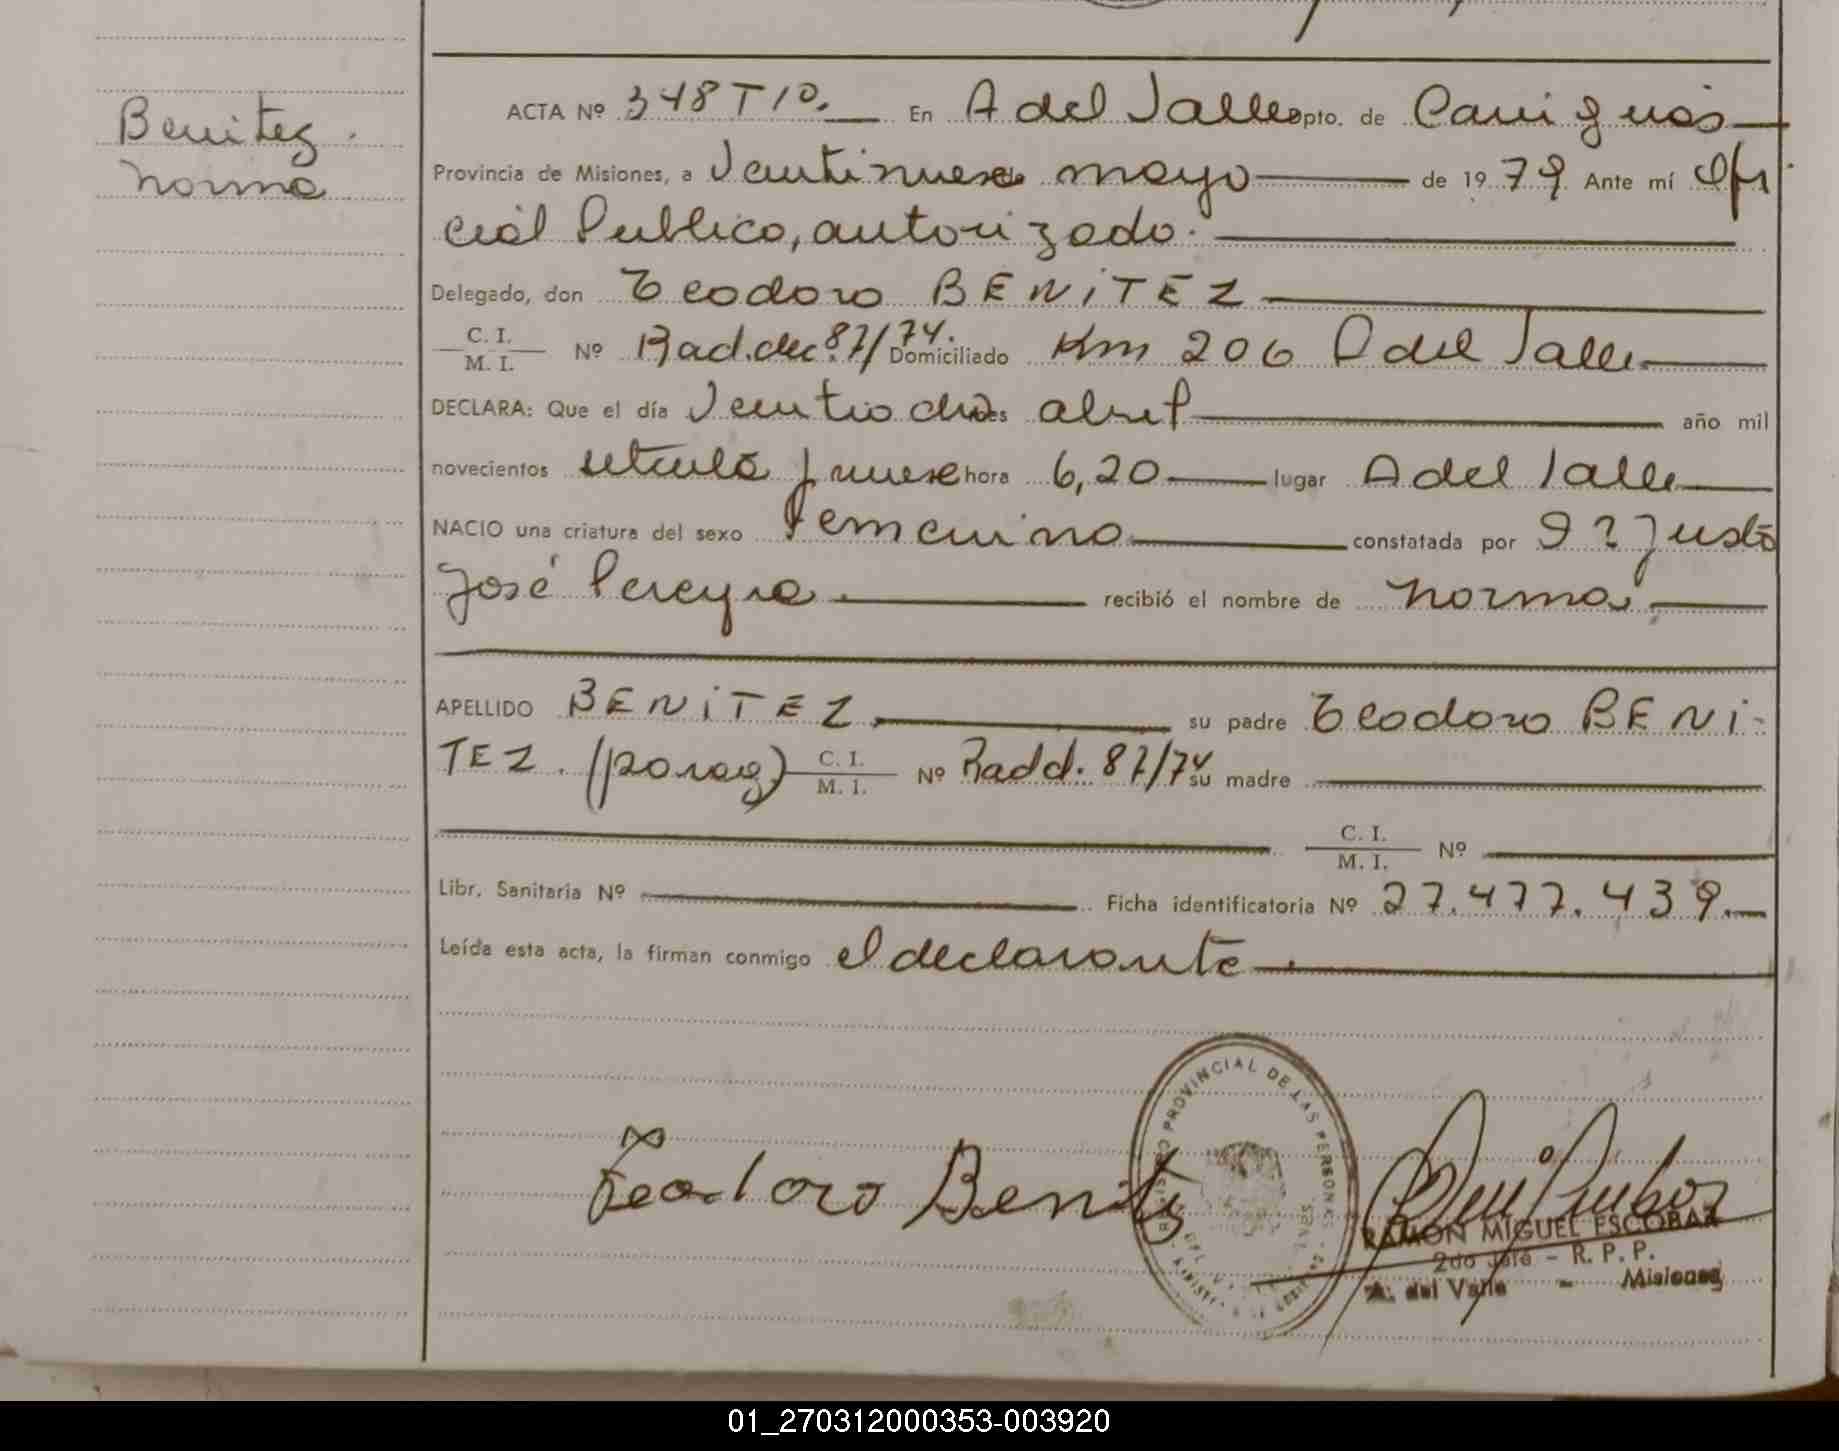 Benitez
Norma
ACTA Nº 348 T 10. En A del Valle Dpto. de Cainguás
Provincia de Misiones, a Veintinueve mayo de 1979 Ante mí Ofi
cial Publico, autorizado.
Delegado, don Teodoro BENiTEZ
C. I. / M. I. Nº Rad.dec 87/74. Domiciliado Km 206 A del Valle
DECLARA: Que el día Veintiocho de abril año mil
novecientos setenta y nueve hora 6,20 lugar A del Valle
NACIO una criatura del sexo Femenino constatada por Justo
José Pereyra recibió el nombre de Norma
APELLIDO BENiTEZ su padre Teodoro BENi-
TEZ. (parag) C. I. / M. I. Nº Radd. 87/74 su madre
C. I. / M. I. Nº
Libr. Sanitaria Nº Ficha identificatoria Nº 27.477.439.
Leída esta acta, la firman conmigo el declarante
REGISTRO PROVINCIAL DE LAS PERSONAS
Teodoro Benitz
RAMON MIGUEL ESCOBAR
2do Jefe - R. P. P.
A. del Valle - Misiones
01_270312000353-003920